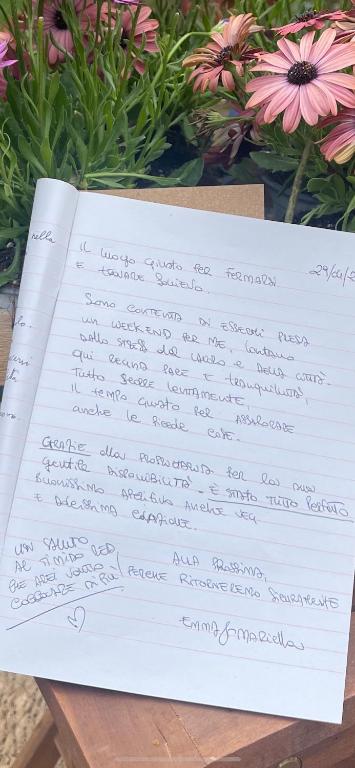 nella
29/04/2
Il luogo giusto per fermarsi
e trovare sollievo.
Sono contenta di essermi presa
un weekend per me, lontano
dallo stress del lavoro e della città.
Qui regna pace e tranquillità,
tutto scorre lentamente.
Il tempo giusto per assaporare
anche le piccole cose.
Grazie alla proprietaria per la sua
gentile disponibilità. È stato tutto perfetto
buonissimo aperitivo anche veg
e ottima colazione.
Un saluto
al timido Red
che avrei voluto
coccolare di più
Alla prossima,
perché ritorneremo sicuramente
Emma & Mariella